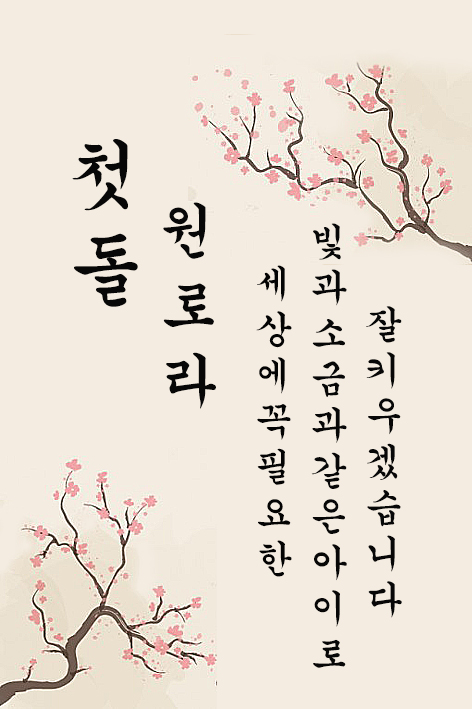 첫돌
원로라
세상에꼭필요한
빛과소금과같은아이로
잘키우겠습니다